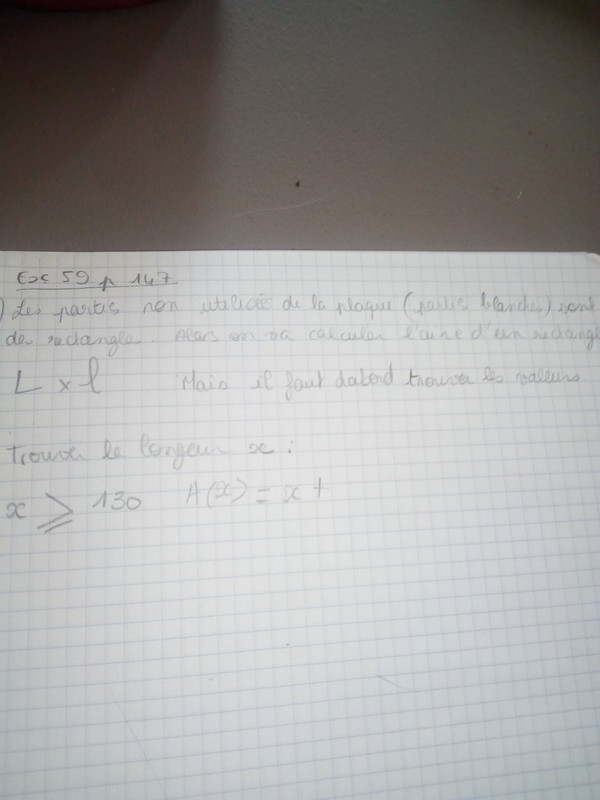 Exc 59 p 147
) Les partis non utilisés de la plaque (partis blanches) sont
de rectangle. Alors on va calculer l'aire d'un rectangle
L x l Mais il faut dabord trouver les valeurs
Trouver le longeur x :
x ⩾ 130 A(x) = x +